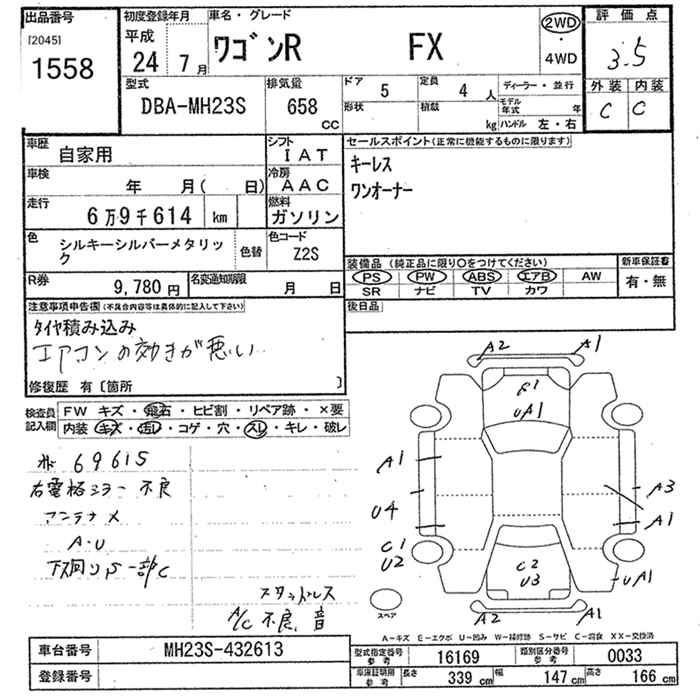 出品番号
[2045]
1558
初度登録年月
平成
24 年 7 月
車名・グレード
ワゴンR FX
2WD
・
4WD
評価点
3.5
外装 内装
C C
型式
DBA-MH23S
排気量
658
CC
ドア 5
定員 4 人
形状
積載 kg
ディーラー・並行
モデル年式 年
ハンドル 左・右
車歴
自家用
シフト
IAT
車検
年 月( 日)
冷房
AAC
走行
6万9千614 km
燃料
ガソリン
色
シルキーシルバーメタリック
色替
色コード
Z2S
R券
9,780 円
名変通知期限
月 日
セールスポイント(正常に機能するものに限ります)
キーレス
ワンオーナー
装備品 (純正品に限り○をつけてください)
PS PW ABS エアB AW
SR ナビ TV カワ
新車保証書
有・無
後日品
注意事項申告欄(不具合内容等は具体的に記入して下さい)
タイヤ積み込み
エアコンの効きが悪い
修復歴 有〔箇所 〕
検査員
記入欄
FW キズ・飛石・ヒビ割・リペア跡・×要
内装 キズ・汚レ・コゲ・穴・スレ・キレ・破レ
69615
右電格ミラー不良
アンテナ×
A・U
下回りS一部C
スタッドレス
A/C 不良、音
A2 A1
UA1
A1
U4
C1
U2
A3
A1
C2
U3
UA1
A2 A1
スペア
A-キズ E-エクボ U-凹み W-補修跡 S-サビ C-腐食 XX-交換済
車台番号
MH23S-432613
登録番号
型式指定番号
参考
16169
類別区分番号
参考
0033
車庫証明用
参考
長さ 339 cm
幅 147 cm
高さ 166 cm